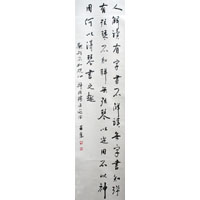 人解讀有字書不解讀無字書知彈
有弦琴不知彈無弦琴以迹用不以神
用何以得琴書之趣